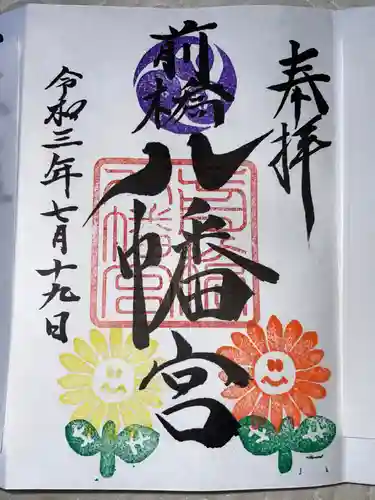 奉拝
前橋
八幡宮
令和三年七月十九日